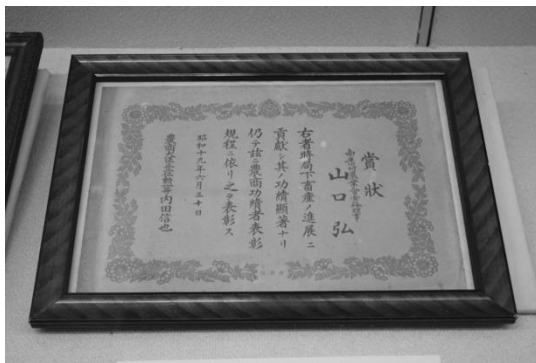 賞狀
山口弘
右者時局下畜產ノ進展ニ
貢獻シ其ノ功績顯著ナリ
仍テ茲ニ農商功績者表彰
規程ニ依リ之ヲ表彰ス
昭和十九年六月三十日
農商大臣 内田信也